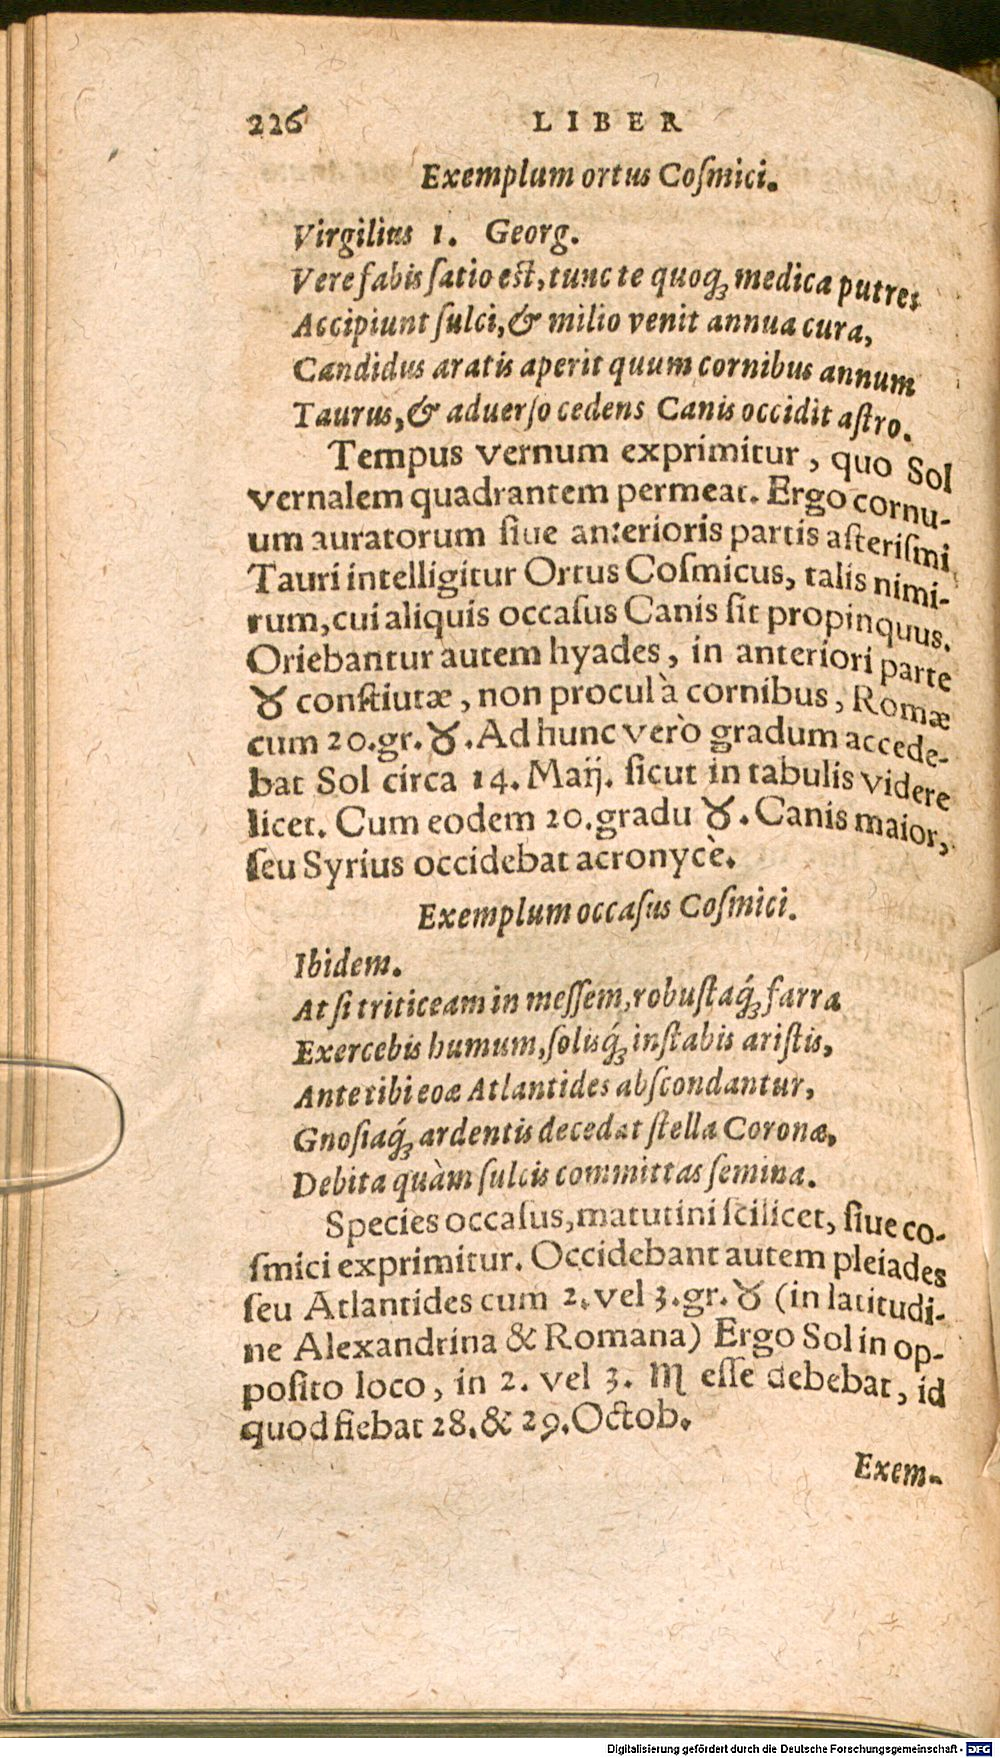 226 LIBER
Exemplum ortus Coſmici.
Virgilius 1. Georg.
Vere fabis ſatio est, tunc te quoqꝫ medica putres
Accipiunt ſulci, & milio venit annua cura,
Candidus aratis aperit quum cornibus annum
Taurus, & aduerſo cedens Canis occidit aſtro.
Tempus vernum exprimitur, quo Sol
vernalem quadrantem permeat. Ergo cornu-
um auratorum ſiue anterioris partis aſteriſmi
Tauri intelligitur Ortus Coſmicus, talis nimi-
rum, cui aliquis occaſus Canis ſit propinquus.
Oriebantur autem hyades, in anteriori parte
♉ conſtiutæ, non procul à cornibus, Romæ
cum 20. gr. ♉. Ad hunc verò gradum accede-
bat Sol circa 14. Maij. ſicut in tabulis videre
licet. Cum eodem 20. gradu ♉. Canis maior,
ſeu Syrius occidebat acronycè.
Exemplum occaſus Coſmici.
Ibidem.
At ſi triticeam in meſſem, robuſtaq́ꝫ farra
Exercebis humum, ſolisq́ꝫ inſtabis ariſtis,
Ante tibi eoæ Atlantides abſcondantur,
Gnoſiaq́ꝫ ardentis decedat ſtella Coronæ,
Debita quàm ſulcis committas ſemina.
Species occaſus, matutini ſcilicet, ſiue co-
ſmici exprimitur. Occidebant autem pleiades
ſeu Atlantides cum 2. vel 3. gr. ♉ (in latitudi-
ne Alexandrina & Romana) Ergo Sol in op-
poſito loco, in 2. vel 3. ♏ eſſe debebat, id
quod fiebat 28. & 29. Octob.
Exem-
Digitalisierung gefördert durch die Deutsche Forschungsgemeinschaft - DFG